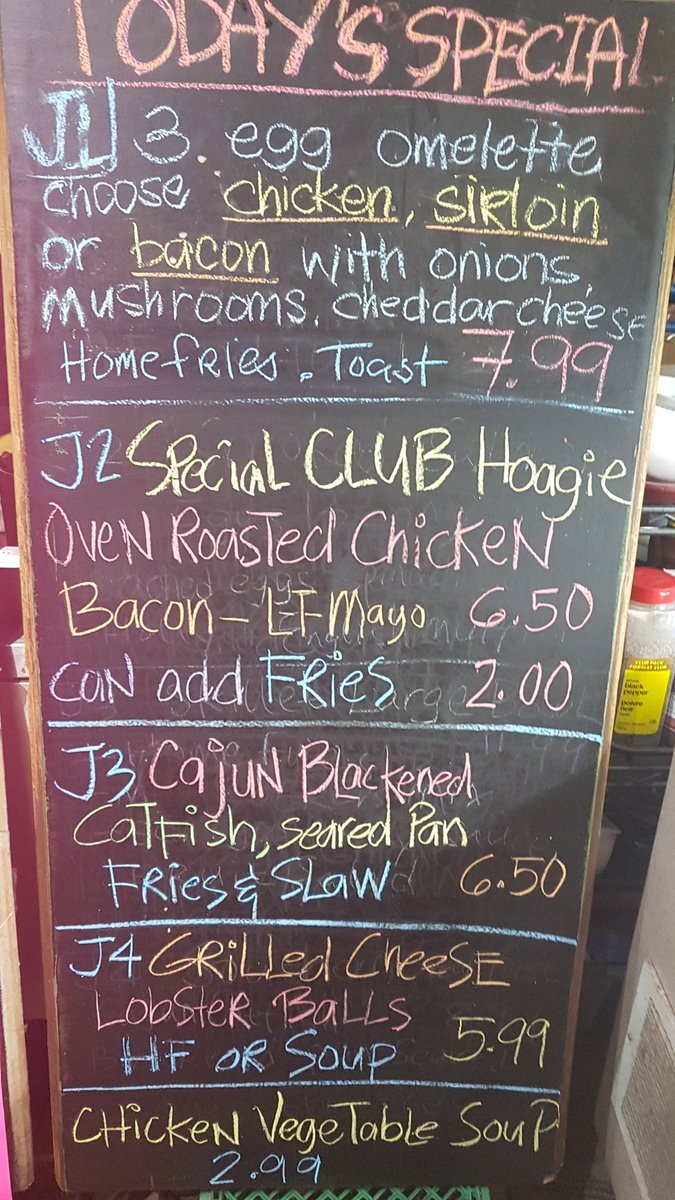 TODAY'S SPECIAL
J1 3 egg omelette
choose chicken, sirloin
or bacon with onions,
mushrooms, cheddar cheese
Homefries. Toast 7.99
J2 Special CLUB Hoagie
Oven Roasted Chicken
Bacon - LT-Mayo 6.50
can add Fries 2.00
J3 Cajun Blackened
Catfish, seared Pan
Fries & Slaw 6.50
J4 Grilled Cheese
Lobster Balls
HF or Soup 5.99
Chicken Vegetable Soup
2.99
CLUB PACK
FORMAT CLUB
black
pepper
poivre
noir